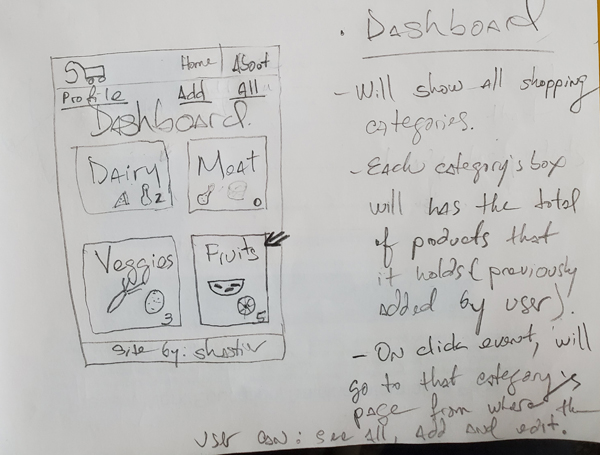 Home About
Profile Add All
Dashboard
Dairy 2
Meat 0
Veggies 3
Fruits 5
Site by:
• Dashboard
- Will show all shopping
categories.
- Each category's box
will has the total
of products that
it holds (previously
added by user).
- On click event, will
go to that category's
page from where the
user can: see all, add and edit.